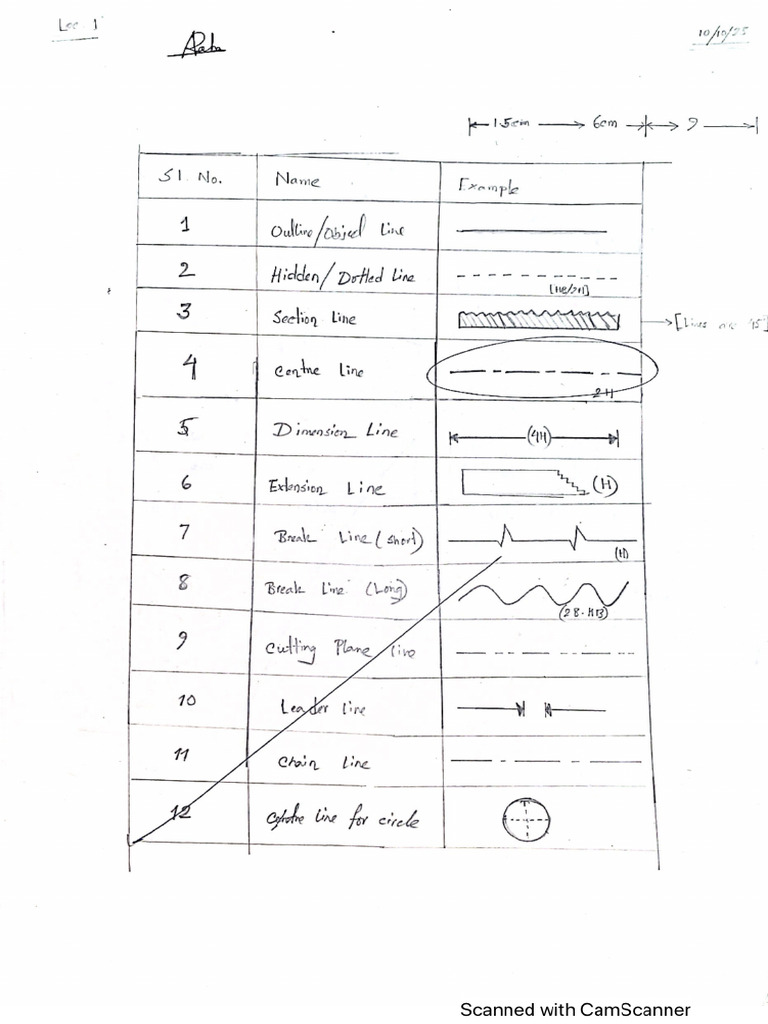 Lec. 1
10/10/25
1.5cm 6cm 9
Sl. No. Name Example
1 Outline/Object Line
2 Hidden/Dotted Line
3 Section Line
[Lines are 45°]
4 Centre line
2H
5 Dimension Line (4H)
6 Extension Line (H)
7 Break Line (short)
(H)
8 Break Line (Long)
9 Cutting Plane line
10 Leader line
11 Chain line
12 line for circle
Scanned with CamScanner